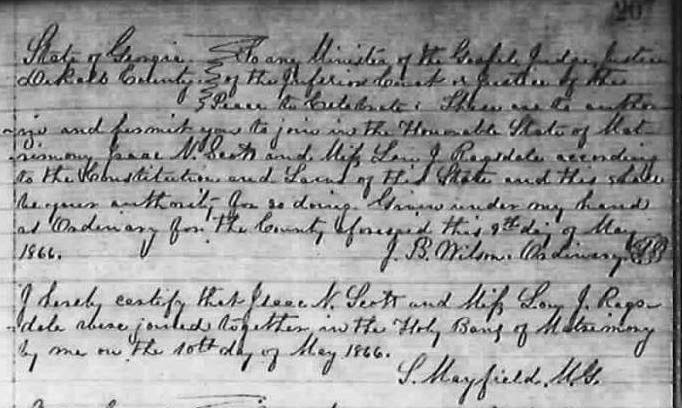 207
State of Georgia To any Minister of the Gospel, Judge, Justice
DeKalb County of the Inferior Court or Justice of the
Peace to Celebrate: These are to author-
-ize and permit you to join in the Honorable State of Mat-
-rimony Isaac N. Scott and Miss Lou J. Ragsdale according
to the Constitution and Laws of this State and this shall
be your authority for so doing. Given under my hand
as Ordinary for the County aforesaid this 9th day of May
1866. J. B. Wilson. Ordinary
I hereby certify that Isaac N. Scott and Miss Lou J. Rags-
-dale were joined together in the Holy Bans of Matrimony
by me on the 10th day of May 1866.
S. Mayfield, M.G.